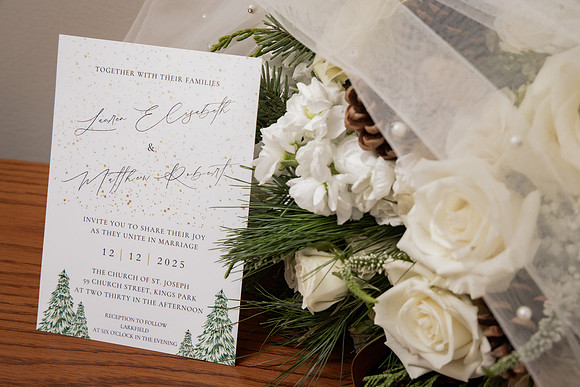 TOGETHER WITH THEIR FAMILIES
Lauren Elizabeth
&
Matthew Robert
INVITE YOU TO SHARE THEIR JOY
AS THEY UNITE IN MARRIAGE
12 | 12 | 2025
THE CHURCH OF ST. JOSEPH
59 CHURCH STREET, KINGS PARK
AT TWO THIRTY IN THE AFTERNOON
RECEPTION TO FOLLOW
LARKFIELD
AT SIX O'CLOCK IN THE EVENING